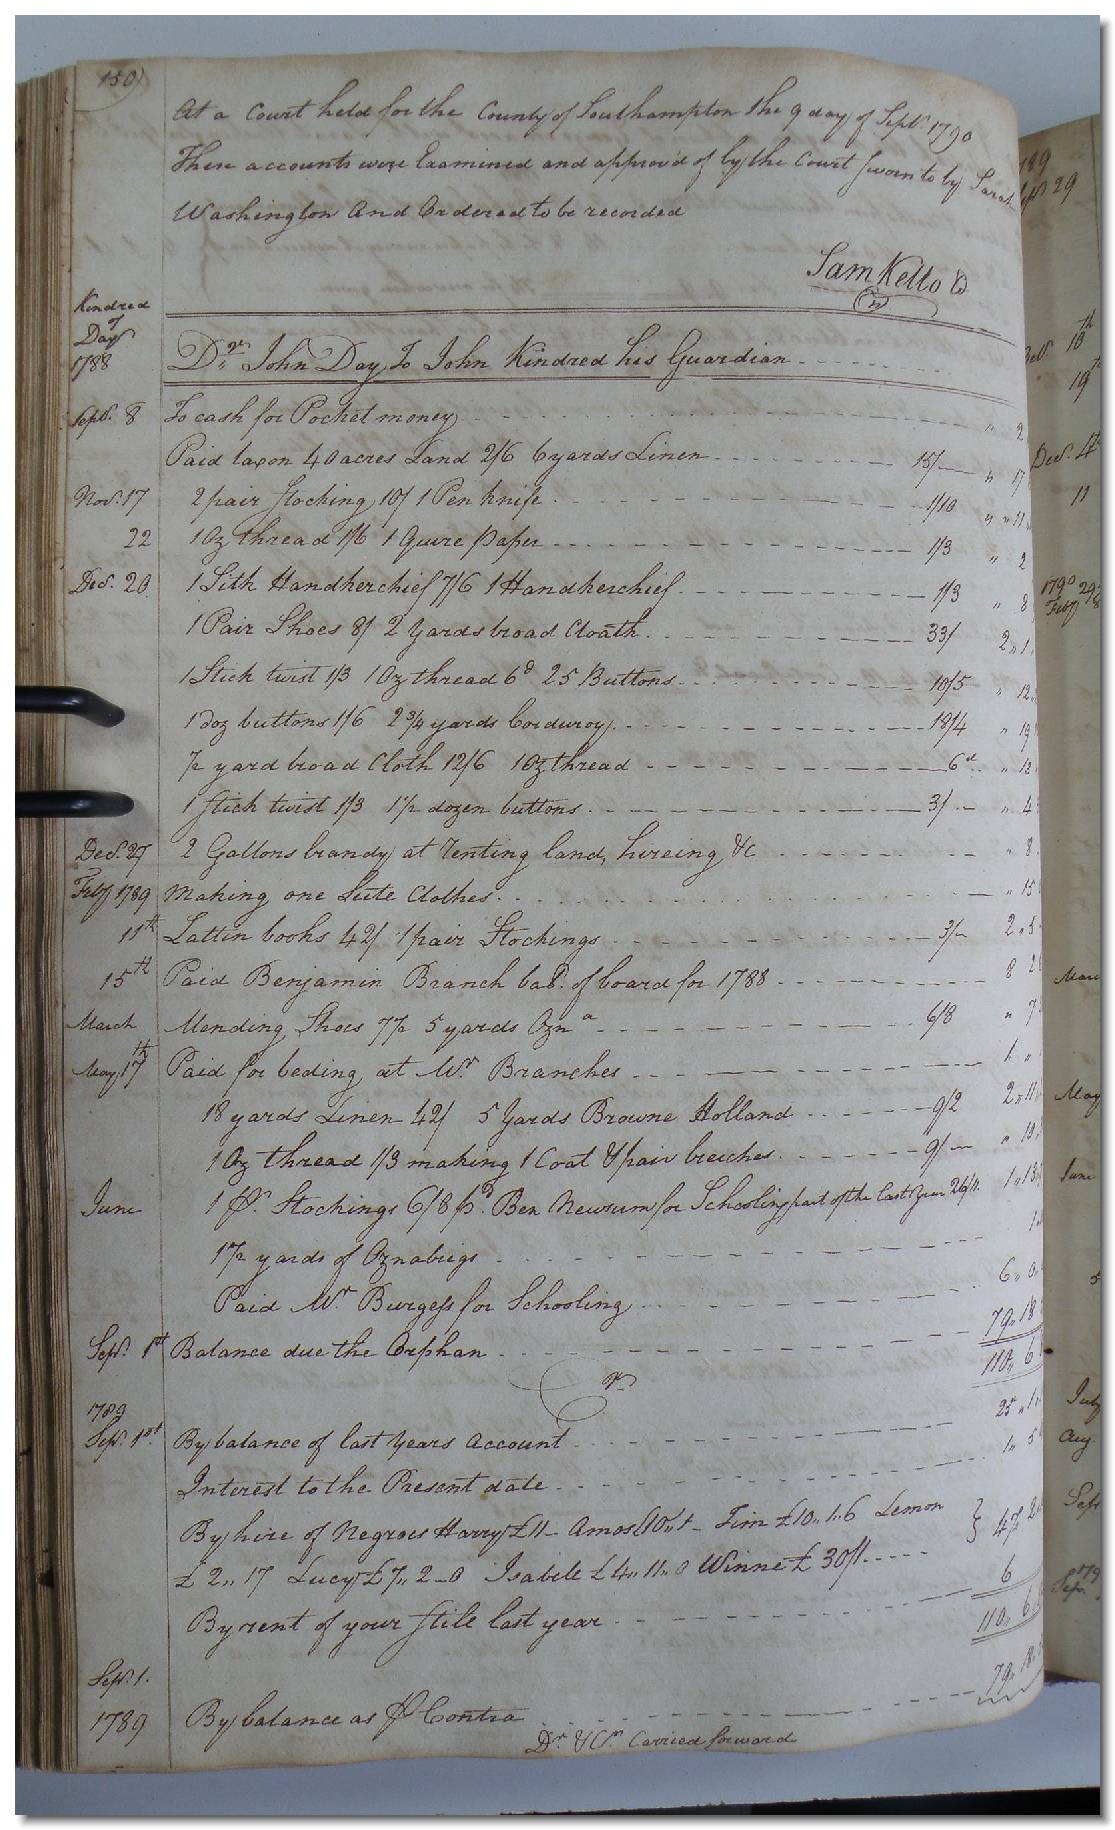 150
At a Court held for the County of Southampton the 9 day of Sept. 1790
These accounts were Examined and approv'd of by the Court Sworn to by Sarah
Washington and Ordered to be recorded
Sam Kello
Kindred
of
Day
1788
Dr. John Day To John Kindred his Guardian
Sept. 8 To cash for Pocket money " 2
Paid tax on 40 acres Land 2/6 6 yards Linen 15/ " 17
Nov. 17 2 pair Stocking 10/ 1 Pen knife 1/10 " 11
22 1 Oz thread 1/6 1 Quire Paper 1/3 " 2
Dec. 20 1 Silk Handkerchief 7/6 1 Handkerchief 1/3 " 8
1 Pair Shoes 8/ 2 Yards broad Cloath 33/ 2 " 1
1 Stick twist 1/3 1 Oz thread 6d 25 Buttons 10/5 " 12
1 doz buttons 1/6 2 3/4 yards Corduroy 18/4 " 19
1/2 yard broad Cloth 12/6 1 Oz thread 6d " 12
1 Stick twist 1/3 1 1/2 dozen buttons 3/ " 4
Dec. 27 2 Gallons brandy at renting land, hireing &c " 8
Feby 1789 Making one Sute Clothes " 15
11th Lattin books 42/ 1 pair Stockings 3/ 2 " 5
15th Paid Benjamin Branch bal. of board for 1788 8 2
March Mending Shoes 7 1/2 5 yards Ozna 6/8 " 7
May 17th Paid for beding at Mr. Branches 1 "
18 yards Linen 42/ 5 Yards Browne Holland 9/2 2 " 11
1 Oz thread 1/3 making 1 Coat & pair breeches 9/ " 10
June 1 pr. Stockings 6/8 pd. Ben Newsum for Schooling part of the last Year 26/11 1 " 13
1 1/2 yards of Oznabrigs 1
Paid Mr. Burgess for Schooling 6 " 0
Sept. 1st Balance due the Orphan 79 " 18
110 " 6
Cr.
1789
Sept. 1st By balance of last Years Account 25 " 1
Interest to the Present date 1 " 5
By hire of Negroes Harry £11 Amos £10 " 1 Tim £10 " 1 " 6 Lemon
£2 " 17 Lucy £7 " 2 - 0 Isabele £4 " 11 " 0 Winne £ 30/1 } 47 2
By rent of your Still last year 6
110 " 6
Sept. 1.
1789 By balance as pr Contra 79 " 18
Dr. & Cr. Carried forward
189
Sept 29
10th
19th
Dec. 4th
11
1790
Feby
May
June
July
Aug
Sept